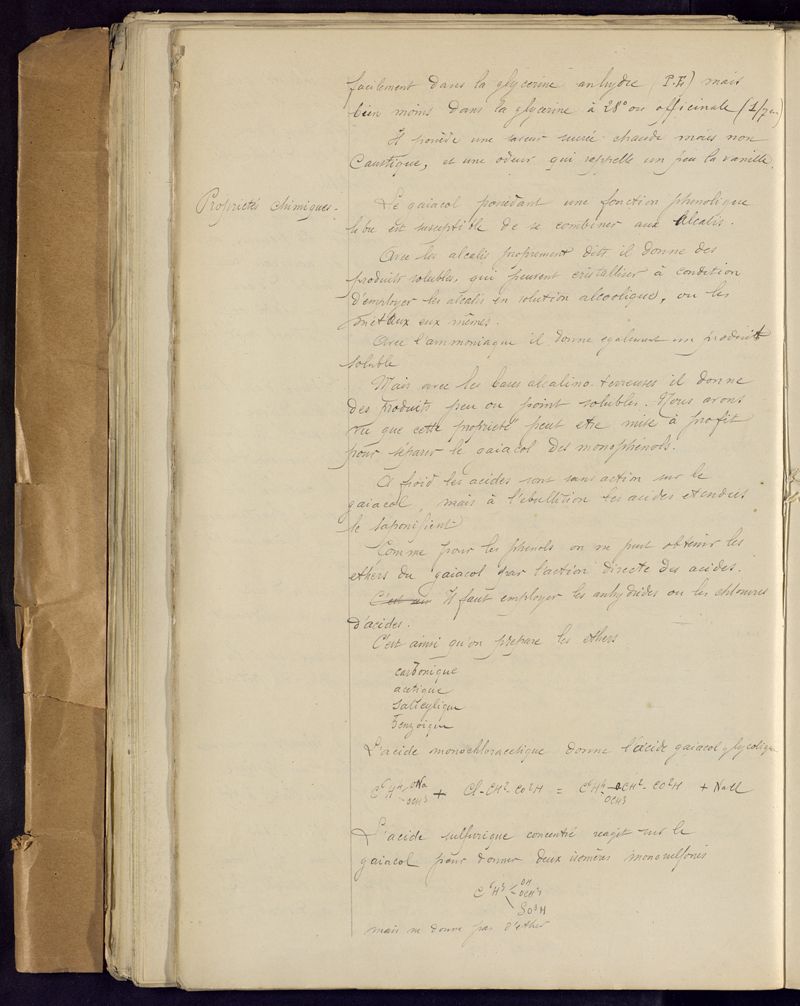 facilement dans la glycerine anhydre (P.E) mais
bien moins dans la glycerine à 28° ou officinale (1/7em)
Il possède une saveur sucrée chaude mais non
Caustique, et une odeur qui rappelle un peu la vanille.
Proprietés chimiques.
Le gaiacol possédant une fonction phenolique
libre est susceptible de se combiner aux Alcalis.
Avec les alcalis proprement dits il donne des
produits solubles, qui peuvent cristalliser à condition
d'employer les alcalis en solution alcoolique, ou les
metaux eux mêmes.
Avec l'ammoniaque il donne egalement un produit
soluble
Mais avec les bases alcalino-terreuses il donne
des produits peu ou point solubles. Nous avons
vu que cette propriete peut etre mise à profit
pour séparer le gaiacol des monophénols.
A froid les acides sont sans action sur le
gaiacol, mais à l'ebullition les acides etendues
le saponifient
Comme pour les phenols on ne peut obtenir les
ethers du gaiacol par l'action directe des acides.
C'est ain Il faut employer les anhydrides ou les chlorures
d'acides.
C'est ainsi qu'on prepare les ethers
carbonique
acetique
Salicylique
Benzoique
L'acide monochloracetique donne l'acide gaiacol glycolique
C⁶H⁴ ONa OCH3 + Cl-CH²-CO²H = C⁶H⁴-OCH²-CO²H OCH3 + NaCl
L'acide sulfurique concentré reagit sur le
gaiacol pour donner deux isomères monosulfonés
C⁶H³ OH OCH3 SO³H
mais ne donne pas d'ether